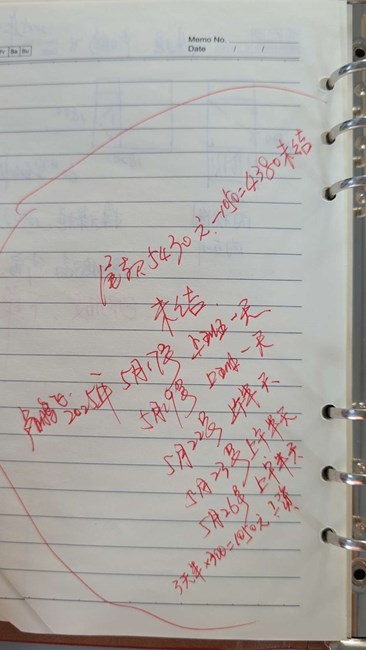 Memo No.
Fr Sa Su
Date / /
尾款5430元-1050=4380未结
未结
2025年5月17号 上班一天
5月19号 上班一天
5月22号 半天
5月23号上午半天
5月26号 上午半天
3天半×300=1050元